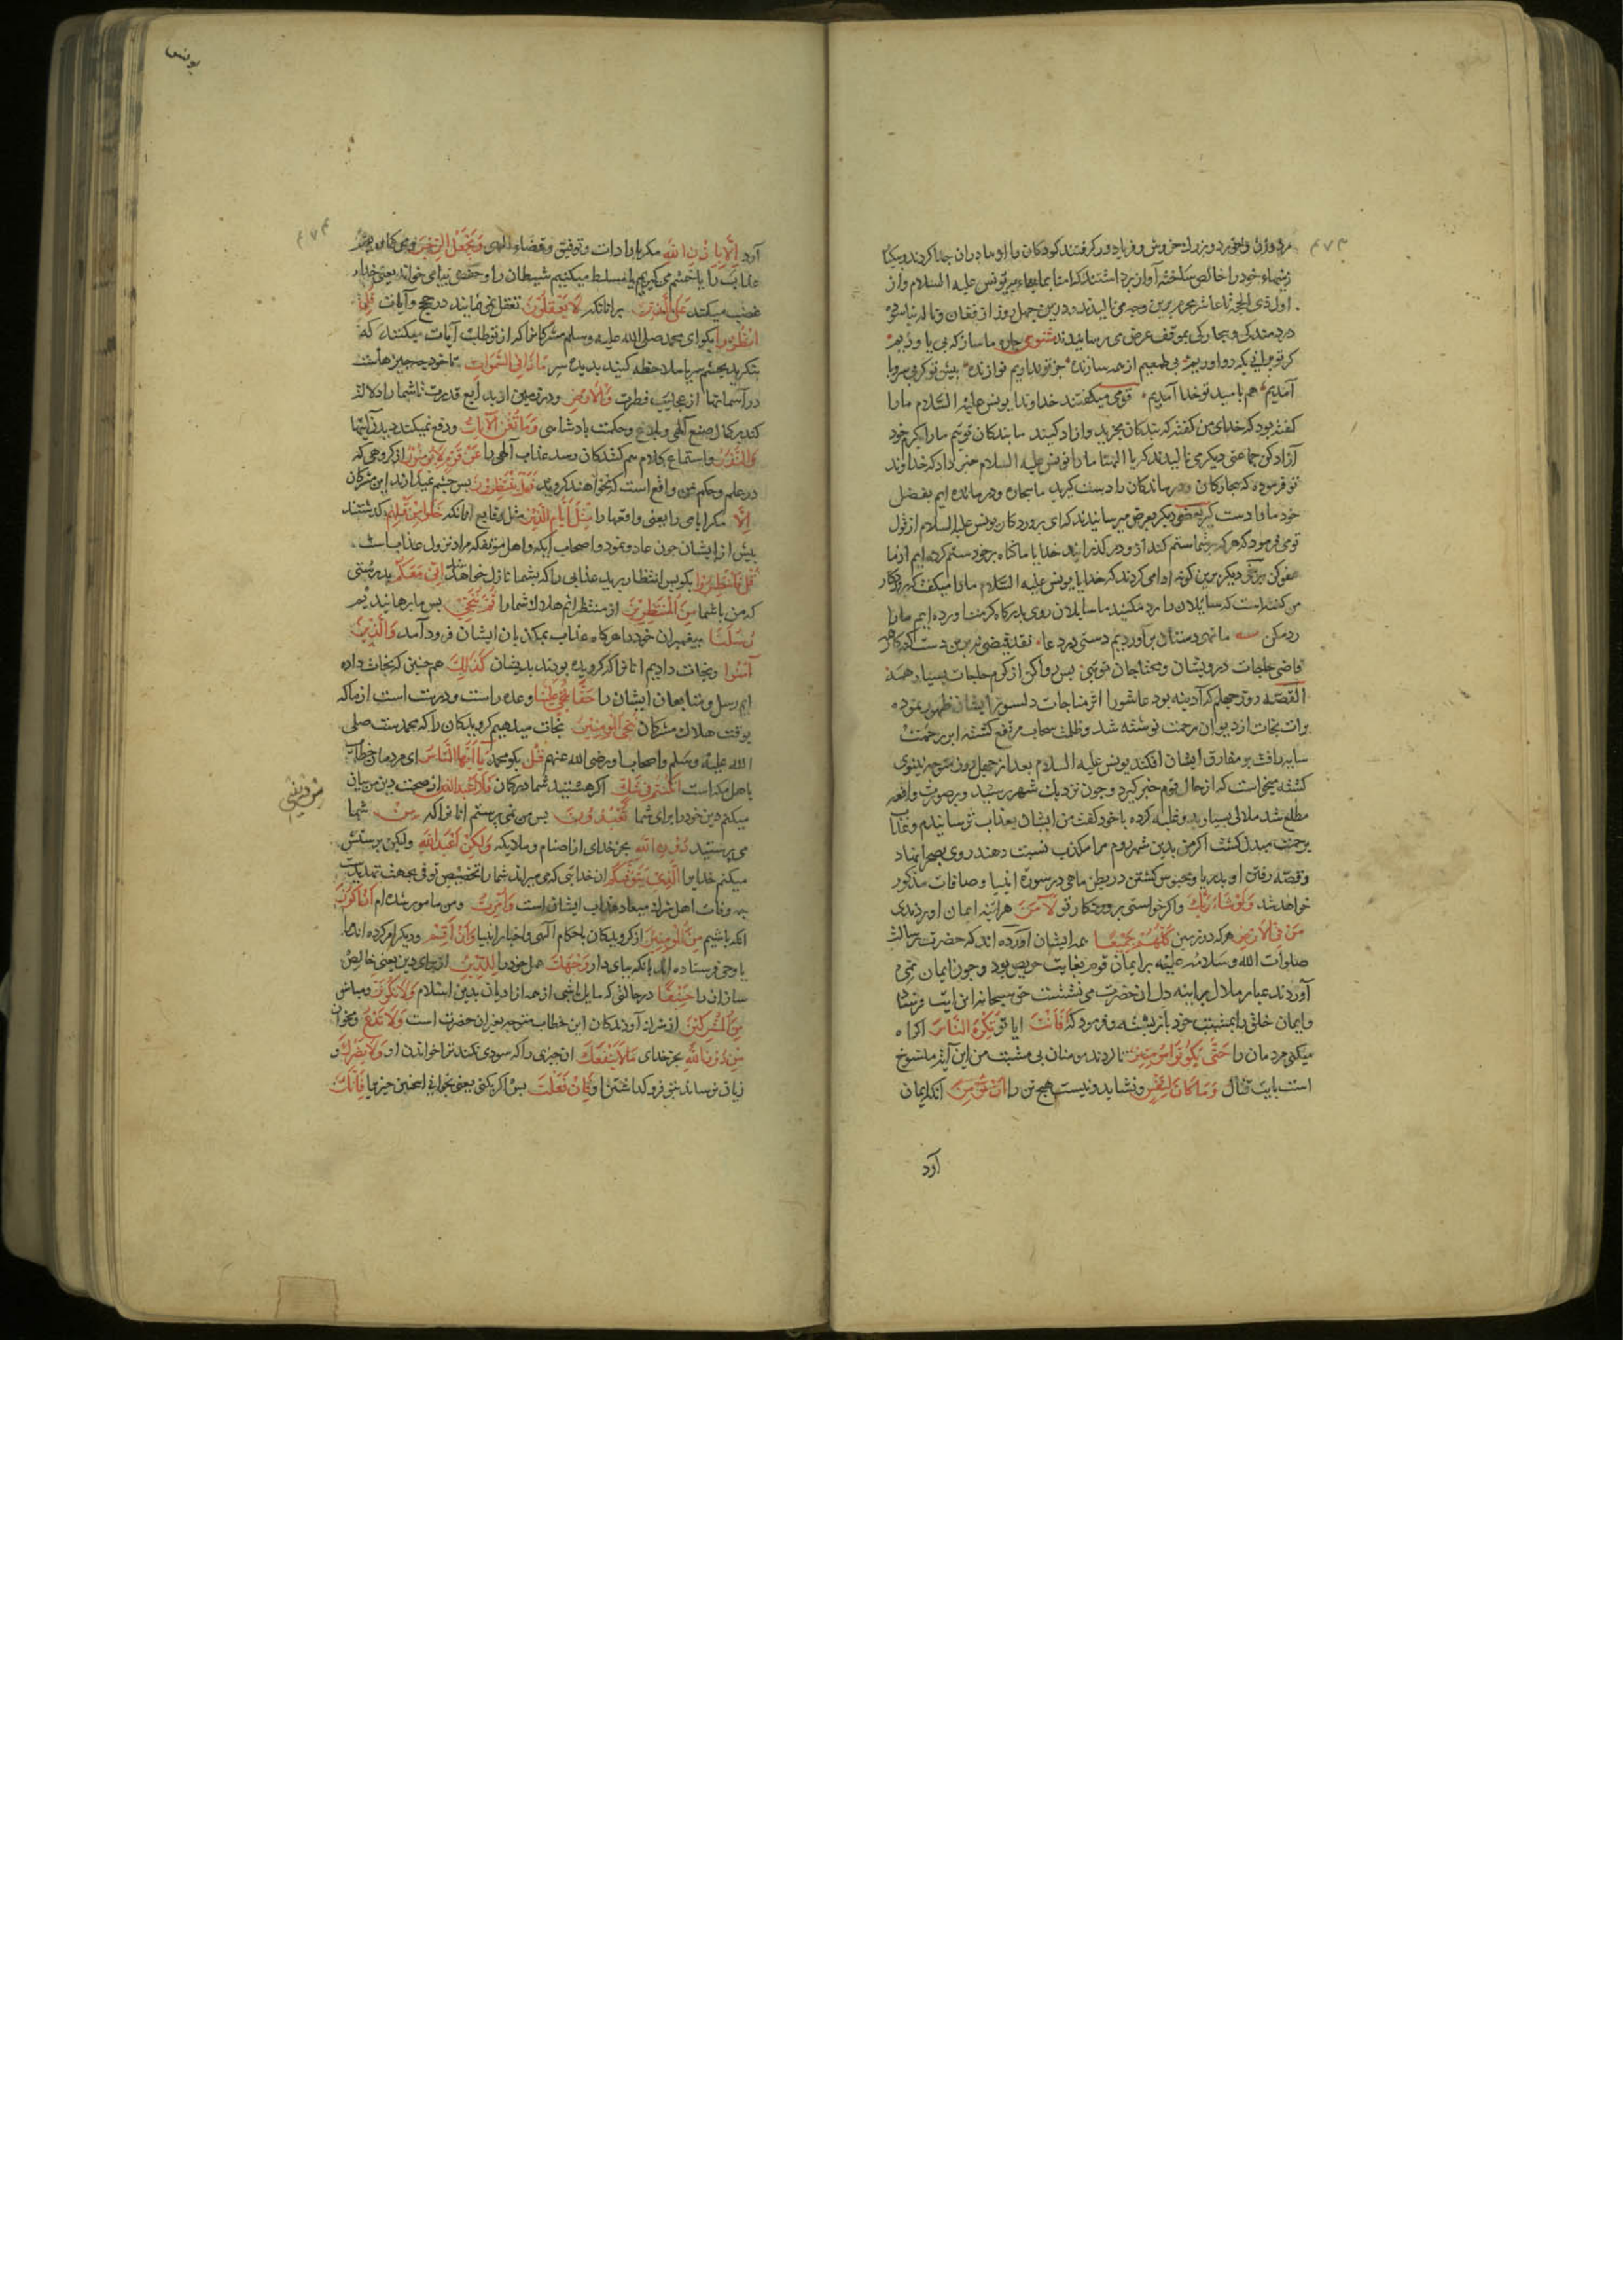 ۴۷۳
مرد و زن و خورد و بزرك خروش و فریاد در کرفتند کودکان را از مادران جدا کردند و بیکبار
نیتهاء خود را خالص ساخته آواز برداشتند که امنا بما جاء به یونس علیه السلام و از
اول ذی الحجة تا عاشر محرم برین وجه می نالیدند و درین چهل روز از فغان و ناله نیاسوده
درد مندکی و بیچارکی بموقف عرض می رسانیدند مثنوی چاره ما ساز که بی یاوریم
کر تو برانی بکه رو آوریم بی طمعیم از همه سازنده جز تو نداریم نوازنده پیش تو کر بی سر و پا
آمدیم هم بامید تو خدا آمدیم قومی میکفتند خداوندا یونس علیه السّلام ما را
کفته بود که خدای من کفته که بندکان بخرید و ازاد کنید ما بندکان توییم ما را بکرم خود
آزاد کن جماعتی دیکر می نالیدند که یا الهنا ما را یونس علیه السلام خبر داد که خداوند
تو فرموده که بیچارکان و درماندکان را دست کیرید ما بیچاره و درمانده ایم بفضل
خود ما را دست کیر بعضی دیکر بعرض میرسانیدند که ای پروردکار یونس علیه السلام از قول
تو می فرمود که هر که بر شما ستم کند از و در کذرانید خدایا ما بکناه بر خود ستم کرده ایم از ما
عفو کن برخی دیکر برین کونه ادا می کردند که خدایا یونس علیه السّلام ما را میکفت که پروردکار
من کفته است که سایلان را رد مکنید ما سایلان روی بدرکاه کرمت آورده ایم ما را
رد مکن ما تهی دستان برآوردیم دستی در دعا نقد فیضی نه برین دست
قاضی حاجات درویشان و محتاجان تویی پس روا کن از کرم حاجات بسیار همه
القصّه روز چهلم که آدینه بود عاشورا اثر مناجات دلسوز ایشان ظهور نموده
برات نجات از دیوان رحمت نوشته شد و ظلمت سحاب مرتفع کشته ابر رحمت
سایه رافت بر مفارق ایشان افکند یونس علیه السلام بعد از چهل روز متوجه نینوی
کشته میخواست که از حال قوم خبر کیرد و چون نزدیك شهر رسید و بر صورت واقعه
مطلع شد ملالی بسیار بر و غلبه کرده با خود کفت من ایشان بعذاب ترسانیدم و عذاب
برحمت مبدل کشت اکر من بدین شهر روم مرا بکذب نسبت دهند روی بصحرا نهاد
و قصّه رفتن او بدریا و محبوس کشتن در بطن ماهی در سورة انبیا و صافات مذکور
خواهد شد وَلَوْ شَاءَ رَبُّكَ و اکر خواستی پروردکار تو لَآمَنَ هراینه ایمان اوردندی
مَنْ فِي الْأَرْضِ هر که در زمین کُلُّهُمْ جَمِيعًا همه ایشان آورده اند که حضرت رسالت
صلوات الله و سلامه علیه بر ایمان قوم بغایت حریص بود و چون ایمان نمی
آوردند غبار ملال بر اینه دل ان حضرت می نشست حق سبحانه این ایت فرستاد
و ایمان خلق را بمشیت خود باز بسته و فرمود که أَفَأَنْتَ ایا تو تُكْرِهُ النَّاسَ اکراه
میکنی مردمان را حَتَّى يَكُونُوا مُؤْمِنِينَ تا کردند مومنان بی مشیت من این آیة منسوخ
است بایت قتال وَمَا كَانَ لِنَفْسٍ و نشاید و نیست هیچ تن را أَنْ تُؤْمِنَ انکه ایمان
آرد
یونس
۴۷۴
آرد إِلَّا بِإِذْنِ اللَّهِ مکر بارادات و توفیق و قضاء الهی وَيَجْعَلُ الرِّجْسَ
عذاب را یا خشم می کیریم یا مسلط میکنیم شیطان را و حفص بیا می خواند یعنی خدای
غضب میکند عَلَى الَّذِينَ بر انانکه لَا يَعْقِلُونَ تعقل نمی نمایند در حجج و آیات قُلِ
انْظُرُوا بکو ای محمد صلی الله علیه وسلم مشرکانرا که از تو طلب آیات میکنند که
بنکرید بچشم سر یا ملاحظه کنید بدیده سر مَاذَا فِي السَّمَوَاتِ تا خود چه چیز هاست
در آسمانها از عجایب فطرت وَالْأَرْضِ و در زمین از بدایع قدرت تا شما را دلالت
کند بر کمال صنع الهی و حکمت بادشاهی وَمَا تُغْنِي الْآيَاتُ و دفع نمیکند دیدن آیتها
وَالنُّذُرُ و استماع کلام بیم کنندکان رسد عذاب الهی را عَنْ قَوْمٍ لَا يُؤْمِنُونَ از کروهی که
در علم و حکم من واقع است که نخواهند کروید فَهَلْ يَنْتَظِرُونَ پس چشم نمیدارند این مشرکان
إِلَّا مکر ایامی را یعنی واقعها را مِثْلَ أَيَّامِ الَّذِينَ مثل وقایع انانکه خَلَوْا مِنْ قَبْلِهِمْ کذشتند
پیش از ایشان چون عاد و ثمود و اصحاب ایکه و اهل مؤتفکه مراد نزول عذابست
قُلْ فَانْتَظِرُوا بکو پس انتظار برید عذابی را که بشما نازل خواهد شد إِنِّي مَعَكُمْ بدرستی
که من با شما مِنَ الْمُنْتَظِرِينَ از منتظرانم هلاك شما را ثُمَّ نُنَجِّي پس ما برهانیدیم
رُسُلَنَا پیغمبران خود را هرکاه عذاب بمکذبان ایشان فرود آمد وَالَّذِينَ
آمَنُوا و نجات دادیم انانرا که کرویده بودند بدیشان كَذَلِكَ هم چنین که نجات داده
ایم رسل و متابعان ایشان را حَقًّا عَلَيْنَا وعده راست و درست است از ما که
بوقت هلاك مشرکان نُنْجِ الْمُؤْمِنِينَ نجات میدهیم کرویدکان را که محمد ست صلی
الله علیه وسلم و اصحاب او رضی الله عنهم قُلْ بکو محمد يَا أَيُّهَا النَّاسُ ای مردمان خطاب
با هل مکه است إِنْ كُنْتُمْ فِي شَكٍّ اکر هستید شما در کمان از صحت دین من بیان
مِنْ دِينِي
میکنم دین خود را برای شما تَعْبُدُونَ پس من نمی پرستم انانرا که مِنْ شما
می پرستید دُونِ اللَّهِ بجز خدای از اصنام و ملایکه وَلَكِنْ أَعْبُدُ اللَّهَ ولیکن پرستش
میکنم خدایرا الَّذِي يَتَوَفَّاكُمْ ان خدایی که می میراند شما را تخصیص توفی بجهت تهدیدست
چه وفات اهل شرك میعاد عذاب ایشان است وَأُمِرْتُ و من مامور شده ام أَنْ أَكُونَ
انکه باشیم مِنَ الْمُؤْمِنِينَ از کرویدکان باحکام الهی و اخبار انبیا وَأَنْ أَقِمْ و دیکر امر کرده اند ما را
یا وحی فرستاده اند بانکه بپای دار وَجْهَكَ عمل خود را لِلدِّينِ از برای دین یعنی خالص
سازان را حَنِيفًا در حالتی که مایل باشی از همه ادیان بدین اسلام وَلَا تَكُونَنَّ و مباش
مِنَ الْمُشْرِكِينَ از شرك آورندکان این خطاب متوجه بغیر ان حضرت است وَلَا تَدْعُ و مخوان
مِنْ دُونِ اللَّهِ بجز خدای مَا لَا يَنْفَعُكَ ان چیزی را که سودی نکند ترا خواندن او وَلَا يَضُرُّكَ و
زیان نرساند بتو فرو کذاشتن او فَإِنْ فَعَلْتَ پس اکر بکنی یعنی بخوانی اینچنین چیز یرا فَإِنَّكَ